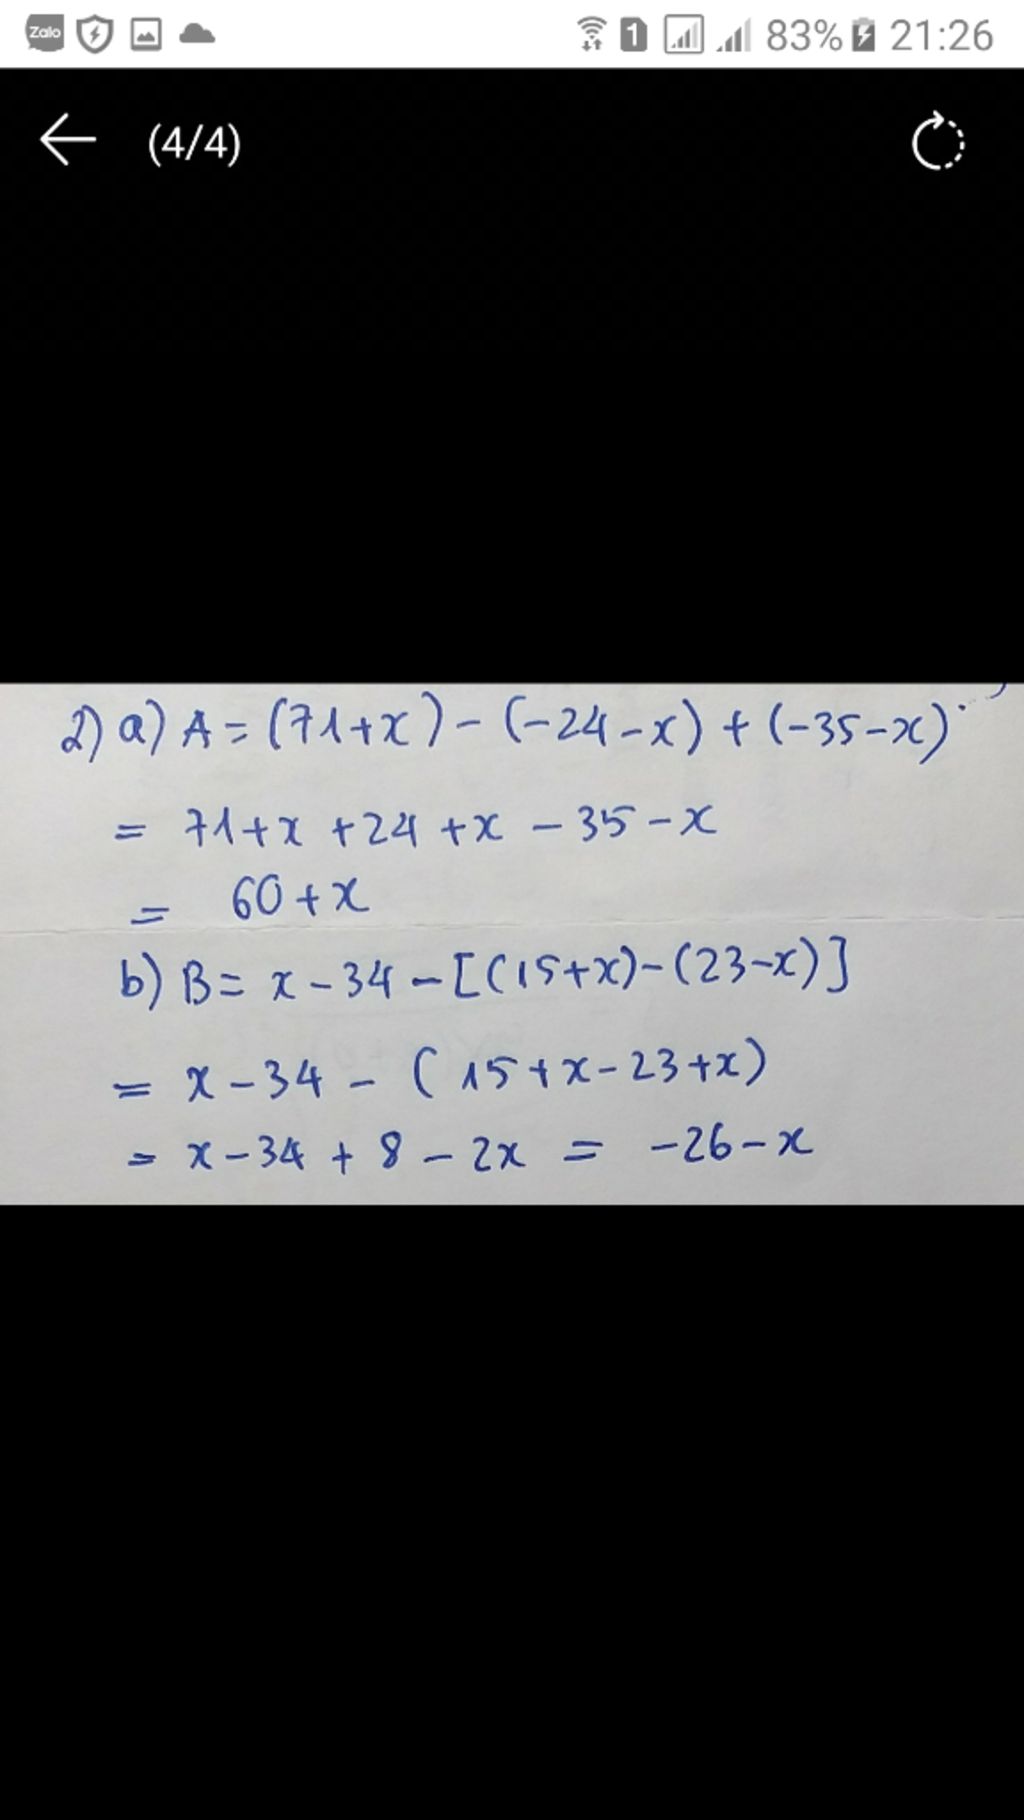 Zalo 1 83% 21:26
(4/4)
2) a) A = (71+x) - (-24-x) + (-35-x)
= 71+x +24 +x - 35 - x
= 60 + x
b) B = x - 34 - [(15+x)-(23-x)]
= x - 34 - (15+x-23+x)
= x - 34 + 8 - 2x = -26-x